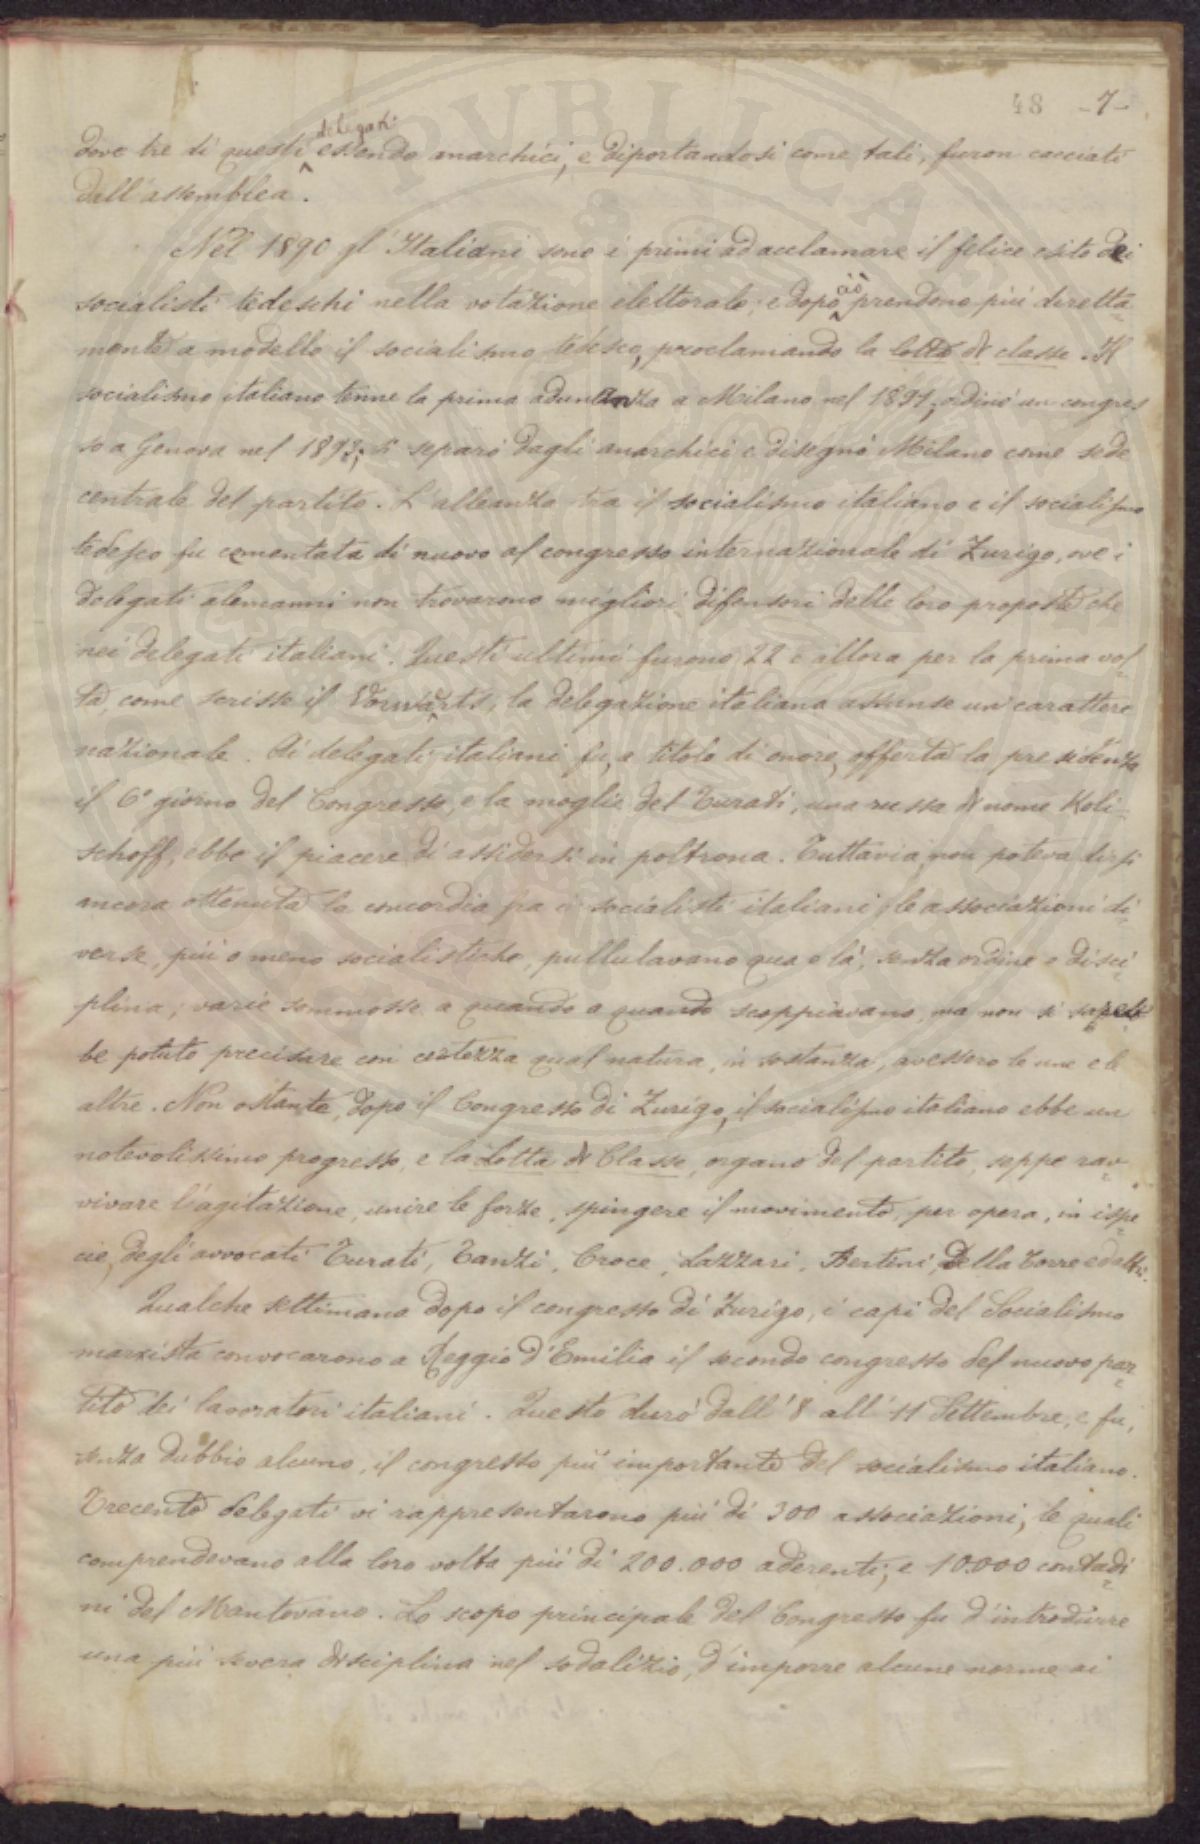 48 -7-
delegati
dove tre di questi essendo anarchici, e diportandosi come tali, furon cacciati
dall'assemblea.
Nel 1890 gl'Italiani sono i primi ad acclamare il felice esito dei
ciò
socialisti tedeschi nella votazione elettorale; e dopo prendono più diretta-
mente a modello il socialismo tedesco, proclamando la lotta di classe. Il
socialismo italiano tenne la prima adunanza a Milano nel 1891; ordinò un congres
so a Genova nel 1892; si separò dagli anarchici e disegnò Milano come sede
centrale del partito. L'alleanza tra il socialismo italiano e il socialismo
tedesco fu cementata di nuovo al congresso internazionale di Zurigo, ove i
delegati alemanni non trovarono migliori difensori delle loro proposte che
nei delegati italiani. Questi ultimi furono 22 e allora per la prima vol-
ta, come scrisse il Vorwärts, la delegazione italiana assunse un carattere
nazionale. Ai delegati italiani fu, a titolo di onore, offerta la presidenza
il 6° giorno del Congresso, e la moglie del Turati, una russa di nome Koli-
schoff, ebbe il piacere di assidersi in poltrona. Tuttavia, non poteva dirsi
ancora ottenuta la concordia fra i socialisti italiani; le associazioni di-
verse, più o meno socialistiche, pullulavano qua e là, senza ordine e disci-
plina; varie sommosse a quando a quando scoppiavano, ma non si sareb
be potuto precisare con certezza qual natura, in sostanza, avessero le une e le
altre. Non ostante, dopo il Congresso di Zurigo, il socialismo italiano ebbe un
notevolissimo progresso, e la Lotta di Classe, organo del partito, seppe rav-
vivare l'agitazione, unire le forze, spingere il movimento, per opera, in ispe-
cie, degli avvocati Turati, Tanzi, Croce, Lazzari, Bertini, Della Torre ed altri.
Qualche settimana dopo il congresso di Zurigo, i capi del Socialismo
marxista convocarono a Reggio d'Emilia il secondo congresso del nuovo par-
tito dei lavoratori italiani. Questo durò dall'8 all'11 Settembre, e fu,
senza dubbio alcuno, il congresso più importante del socialismo italiano.
Trecento delegati vi rappresentarono più di 300 associazioni, le quali
comprendevano alla loro volta più di 200.000 aderenti; e 10.000 contadi-
ni del Mantovano. Lo scopo principale del Congresso fu d'introdurre
una più severa disciplina nel sodalizio, d'imporre alcune norme ai